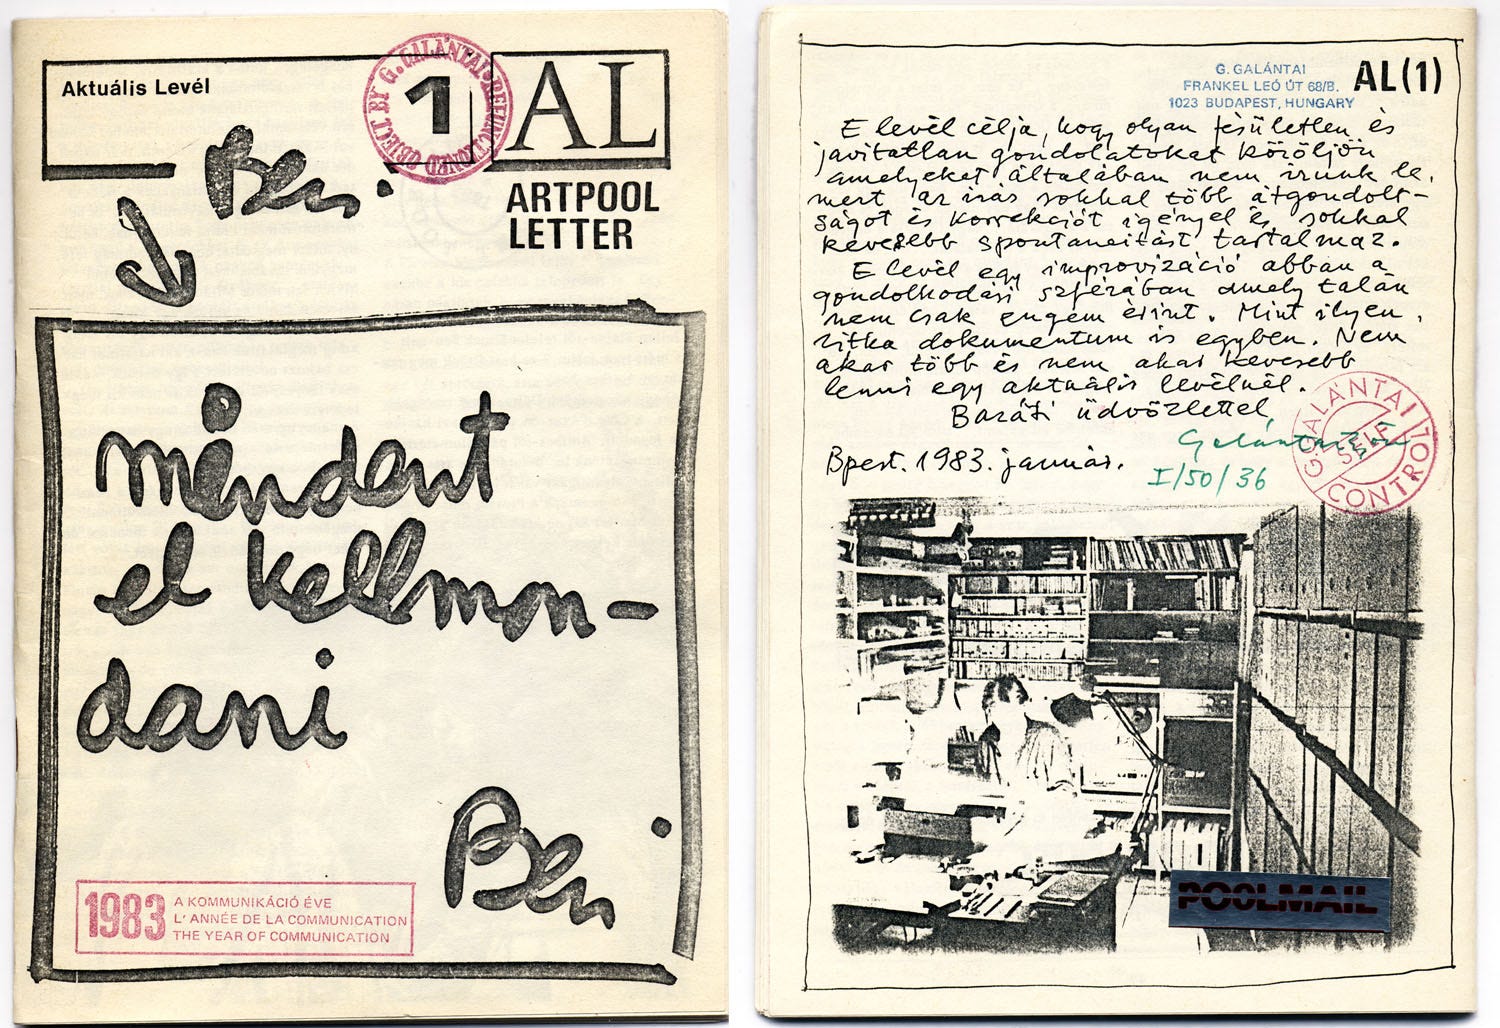 Aktuális Levél
1
AL
G. GALÁNTAI · REFUNCTIONED OBJECT BY
ARTPOOL
LETTER
Ben.
mindent
el kellmon-
dani
Ben
1983
A KOMMUNIKÁCIÓ ÉVE
L' ANNÉE DE LA COMMUNICATION
THE YEAR OF COMMUNICATION
G. GALÁNTAI
FRANKEL LEÓ ÚT 68/B.
1023 BUDAPEST, HUNGARY
AL(1)
E levél célja, hogy olyan fésületlen és
javitatlan gondolatokat közöljön
amelyeket általában nem irunk le,
mert az irás sokkal több átgondolt-
ságot és korrekciót igényel és sokkal
kevesebb spontaneitást tartalmaz.
E levél egy improvizáció abban a
gondolkodási szférában amely talán
nem csak engem érint. Mint ilyen,
ritka dokumentum is egyben. Nem
akar több és nem akar kevesebb
lenni egy aktuális levélnél.
Baráti üdvözlettel
Galántai
Bpest. 1983. január.
I/50/36
G. GALÁNTAI
SELF
CONTROL
POOLMAIL